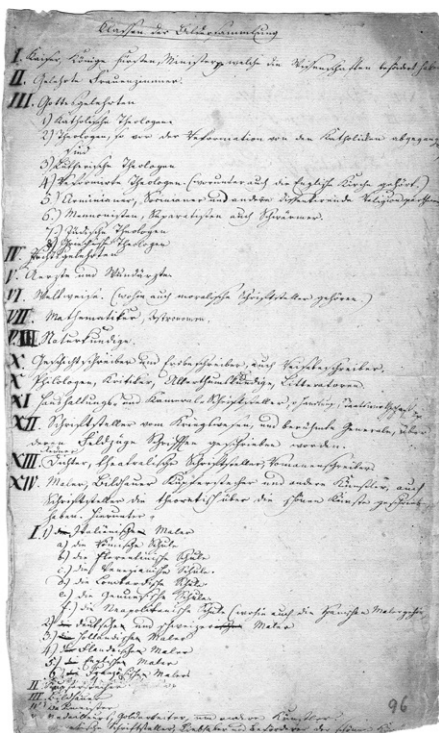 Classen der Bildersammlung
I. Kaiser, Könige, Fürsten, Minister welche die Wissenschaften befördert haben
II. Gelehrte Frauenzimmer.
III. Gottesgelehrten
1) Katholische Theologen
2) Theologen, so vor der Reformation von den Katholicken abgegangen
sind
3) Lutherische Theologen
4) Reformirte Theologen. (worunter auch die Englische Kirche gehört.)
5) Arminianer, Socinianer und andere dissentirende
6) Mennonisten, Separatisten auch Schwärmer.
7) Jüdische Theologen
8) Griechische Theologen
IV. Rechtsgelehrten
V. Aerzte und Wundärzte
VI. Weltweise. (wohin auch moralische Schriftsteller gehören.)
VII. Mathematiker, Astronomen.
VIII Naturkündige.
X. Geschichtschreiber und Erdbeschreiber, auch Reisebeschreiber.
X Philologen, Kritiker, Alterthumskündige, Litteratoren
XI Haushaltungs und Kameral Schriftsteller, Handlung,
XII. Schriftsteller vom Kriegswesen, und berühmte Generale, über
deren Feldzüge Schriften geschrieben worden.
XIII. Dichter, theatralische Schriftsteller, Romanenschreiber
XIV. Maler, Bildhauer Kupferstecher und andere Künstler, auch
Schriftsteller die theoretisch über die schönen Künste geschrieben
haben. hierunter:
I. 1) Italiänischen Maler
a) die Römische Schule
b) die Florentinische Schule
c) die Venezianische Schule.
d) die Lombardische Schule
e) die Genuesische Schule
f) die Neapolitanische Schule (wohin auch die Spanischen Maler gehören
2) deutschen und schweizerischen Maler
3) Holländischen Maler
4) Flandrischen Maler
5) Englischen Maler
6) Französischen Maler
II Kupferstecher
III Bildhauer
IV Baumeister
V Medailleurs, Goldarbeiter, und andere Künstler
Schriftsteller, Liebhaber und Beförderer der schönen
96